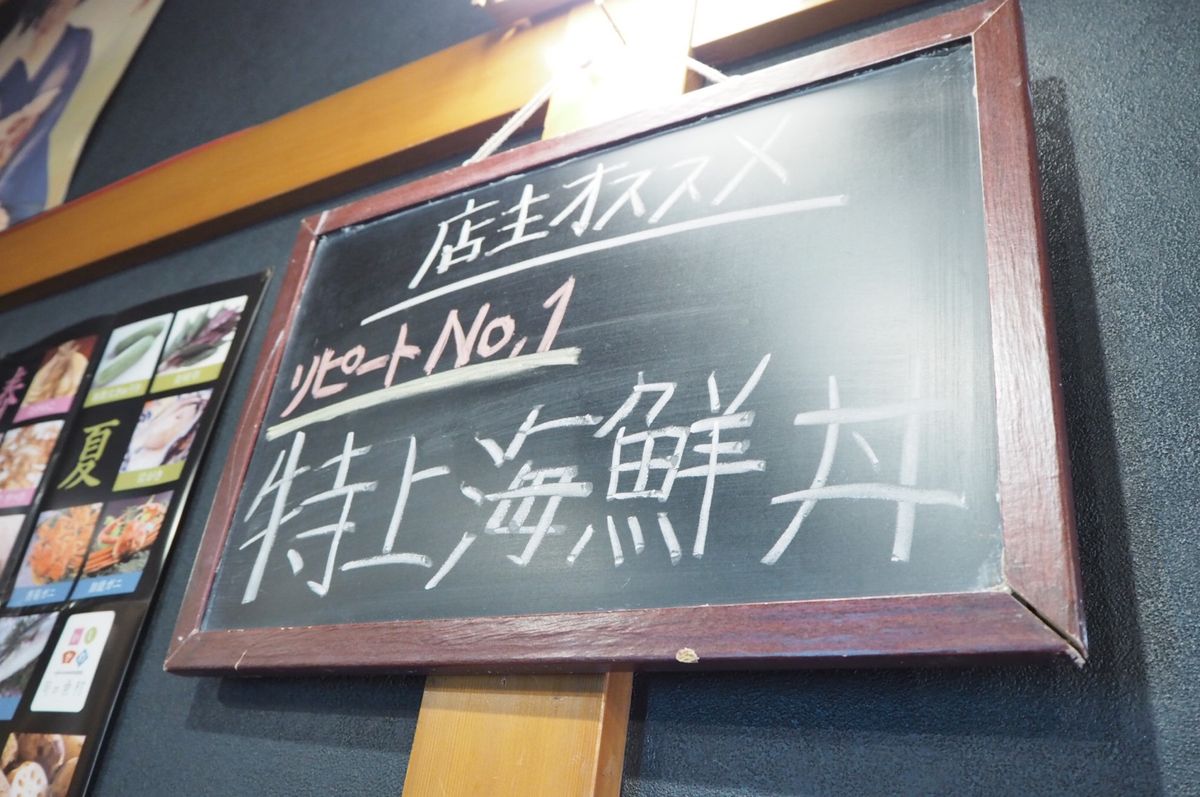 店主オススメ
リピートNo,1
特上海鮮丼
春
夏